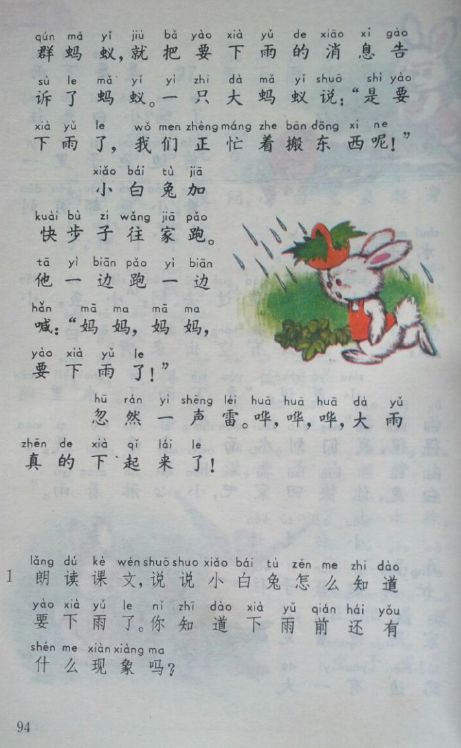 qún mǎ yǐ jiù bǎ yào xià yǔ de xiāo xi gào
群蚂蚁,就把要下雨的消息告
sù le mǎ yǐ yì zhī dà mǎ yǐ shuō shì yào
诉了蚂蚁。一只大蚂蚁说:“是要
xià yǔ le wǒ men zhèng máng zhe bān dōng xi ne
下雨了,我们正忙着搬东西呢!”
xiǎo bái tù jiā
小白兔加
kuài bù zi wǎng jiā pǎo
快步子往家跑。
tā yì biān pǎo yì biān
他一边跑一边
hǎn mā ma mā ma
喊:“妈妈,妈妈,
yào xià yǔ le
要下雨了!”
hū rán yì shēng léi huā huā huā dà yǔ
忽然一声雷。哗,哗,哗,大雨
zhēn de xià qǐ lái le
真的下起来了!
lǎng dú kè wén shuō shuo xiǎo bái tù zěn me zhī dào
1 朗读课文,说说小白兔怎么知道
yào xià yǔ le nǐ zhī dào xià yǔ qián hái yǒu
要下雨了。你知道下雨前还有
shén me xiàn xiàng ma
什么现象吗?
94